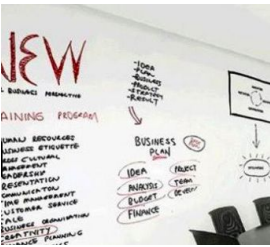 NEW
BUSINESS PERSPECTIVE
AINING PROGRAM
UMAN RESOURCES
USINESS ETIQUETTE
CULTURAL
NAGEMENT
EADERSHIP
RESENTATION
OMMUNICATION
IME MANAGEMENT
USTOMER SERVICE
ALES
ORGANISATION
CREATIVITY
PLANNING
-IDEA
-PLAN
-BUSINESS
-PRODUCT
-STRATEGY
-RESULT
BUSINESS
PLAN
IDEA
ANALYSIS
BUDGET
FINANCE
PROJECT
TEAM